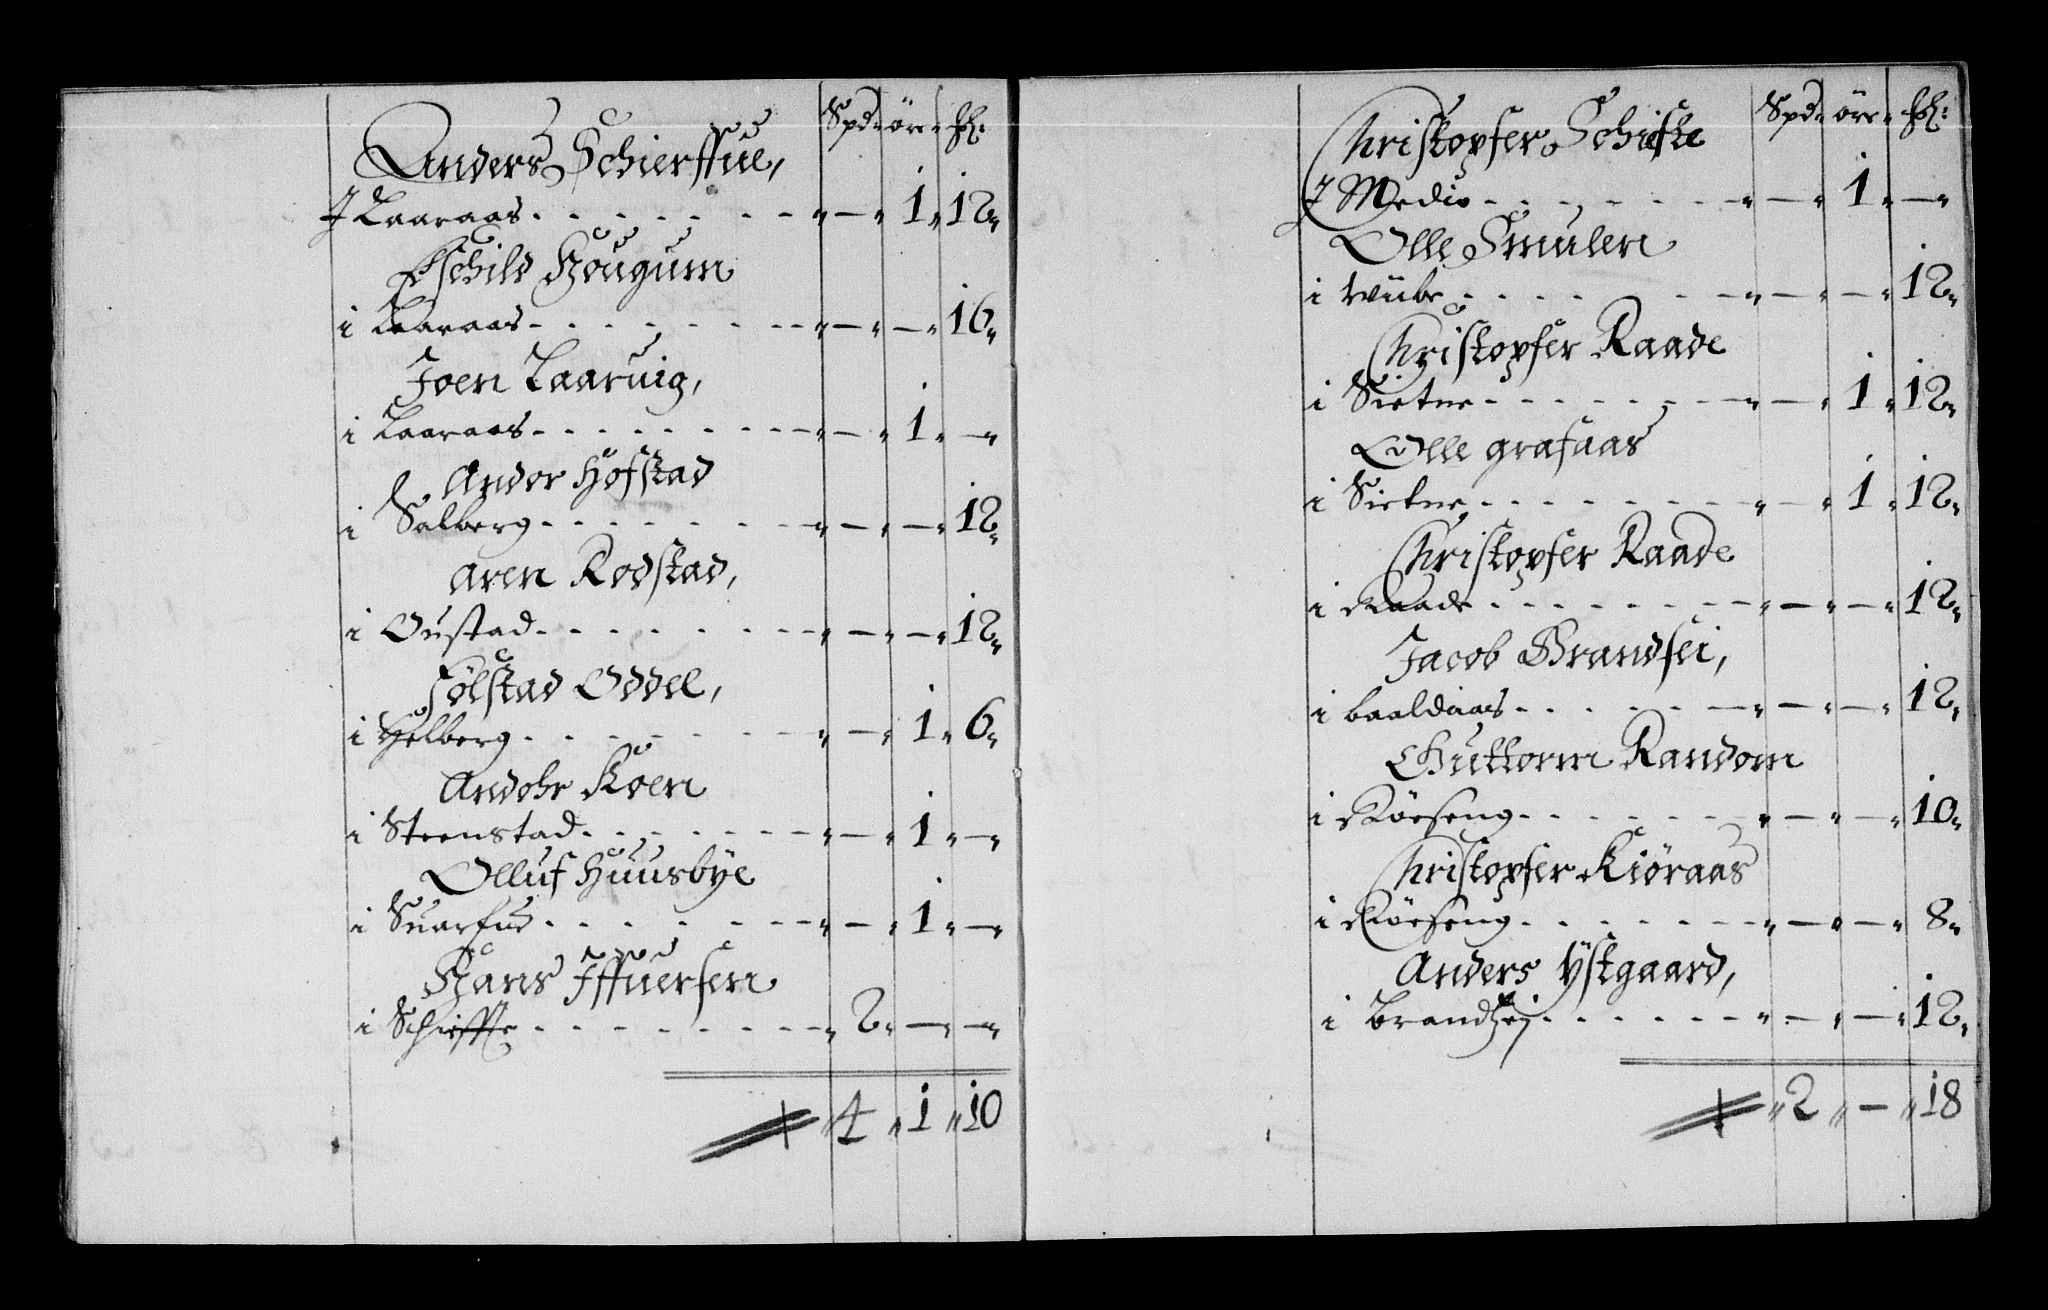 Spd öre ß:
Anders Schierffue,
J Laaraas . . . . . . . " — " 1 " 12 "
Eschild Hougum
i Laaraas . . . . . . . " — " — " 16 "
Joen Laaruig,
i Laaraas . . . . . . . " — " 1 " — "
Ander Hofstad
i Salberg . . . . . . . " — " — " 12 "
Aren Rodstad,
i Oustad . . . . . . . " — " — " 12 "
Følstad Oddel,
i Helberg . . . . . . . " — " 1 " 6 "
Andohr Koen
i Steenstad . . . . . . . " — " 1 " — "
Olluf Huusbÿe
i Suarfud . . . . . . . " — " 1 " — "
Hans Iffuersen
i Schieffte . . . . . . . " 2 " — " — "
" 4 " 1 " 10
Spd öre ß:
Christopfer Schiefte
J Medio . . . . . . . " — " 1 " — "
Olle Smulen
i Wübe . . . . . . . " — " — " 12 "
Christopfer Raade
i Sietne . . . . . . . " — " 1 " 12 "
Olle grafaas
i Sietne . . . . . . . " — " 1 " 12 "
Christopfer Raade
i Raade . . . . . . . " — " — " 12 "
Jacob Brandsei,
i baaldaas . . . . . . . " — " — " 12 "
Guttorm Random
i Köeseng . . . . . . . " — " — " 10 "
Christopfer Kiøraas
i Köeseng . . . . . . . " — " — " 8 "
Anders Ystgaard,
i Brandzej . . . . . . . " — " — " 12 "
" 2 " — " 18